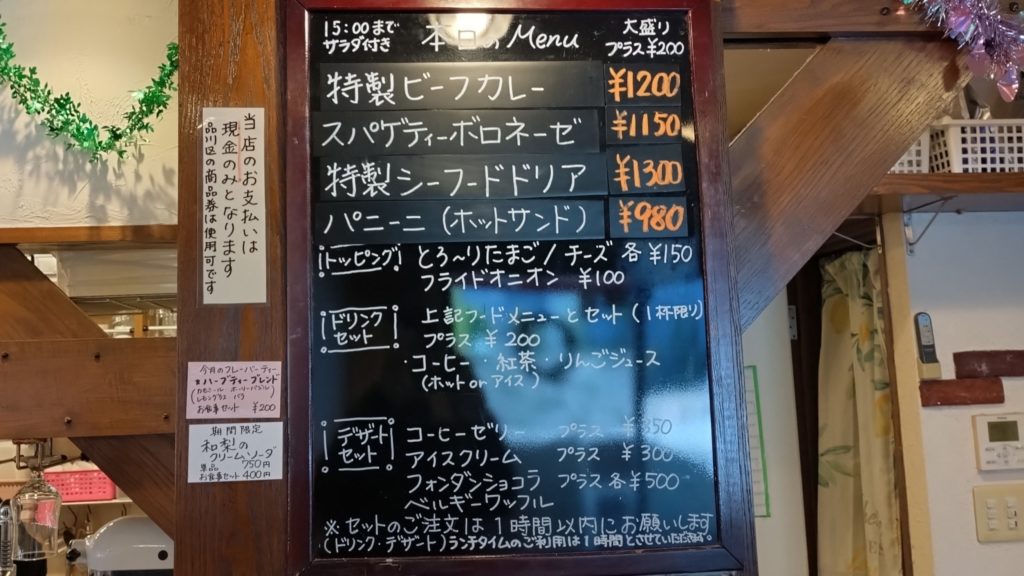 15:00まで
サラダ付き
本日のMenu
大盛り
プラス¥200
特製ビーフカレー ¥1200
スパゲティーボロネーゼ ¥1150
特製シーフードドリア ¥1300
パニーニ(ホットサンド) ¥980
トッピング とろ〜りたまご/チーズ 各¥150
フライドオニオン ¥100
ドリンクセット
上記フードメニューとセット(1杯限り)
プラス ¥200
・コーヒー・紅茶・りんごジュース
(ホットorアイス)
デザートセット
コーヒーゼリー プラス ¥350
アイスクリーム プラス ¥300
フォンダンショコラ プラス各¥500
ベルギーワッフル
※セットのご注文は1時間以内にお願いします
(ドリンク・デザート)ランチタイムのご利用は1時間とさせていただきます。
当店のお支払いは
現金のみとなります
品川区の商品券は使用可です
今月のフレーバーティー
ハーブティーブレンド
お食事セット ¥200
期間限定
和梨の
クリームソーダ
単品 750円
お食事セット 400円